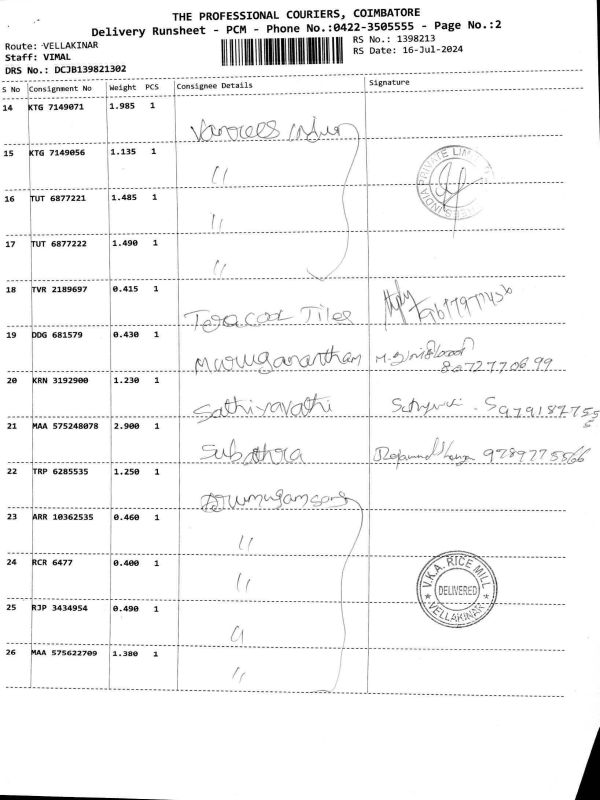 THE PROFESSIONAL COURIERS, COIMBATORE
Delivery Runsheet - PCM - Phone No.:0422-3505555 - Page No.:2
Route: VELLAKINAR
RS No.: 1398213
Staff: VIMAL
RS Date: 16-Jul-2024
DRS No.: DCJB139821302
S No Consignment No Weight PCS Consignee Details Signature
14 KTG 7149071 1.985 1
15 KTG 7149056 1.135 1 "
PRIVATE LIM
INDIA
16 TUT 6877221 1.485 1 "
17 TUT 6877222 1.490 1 "
18 TVR 2189697 0.415 1 Teracoat Tiles
19 DDG 681579 0.430 1 Muruganantham
20 KRN 3192900 1.230 1 Sathiyavathi
21 MAA 575248078 2.900 1 Subathra 9789775566
22 TRP 6285535 1.250 1 Arumugam sons
23 ARR 10362535 0.460 1 "
24 RCR 6477 0.400 1 "
V.K.A. RICE MILL
DELIVERED
VELLAKINAR
25 RJP 3434954 0.490 1 "
26 MAA 575622709 1.380 1 "